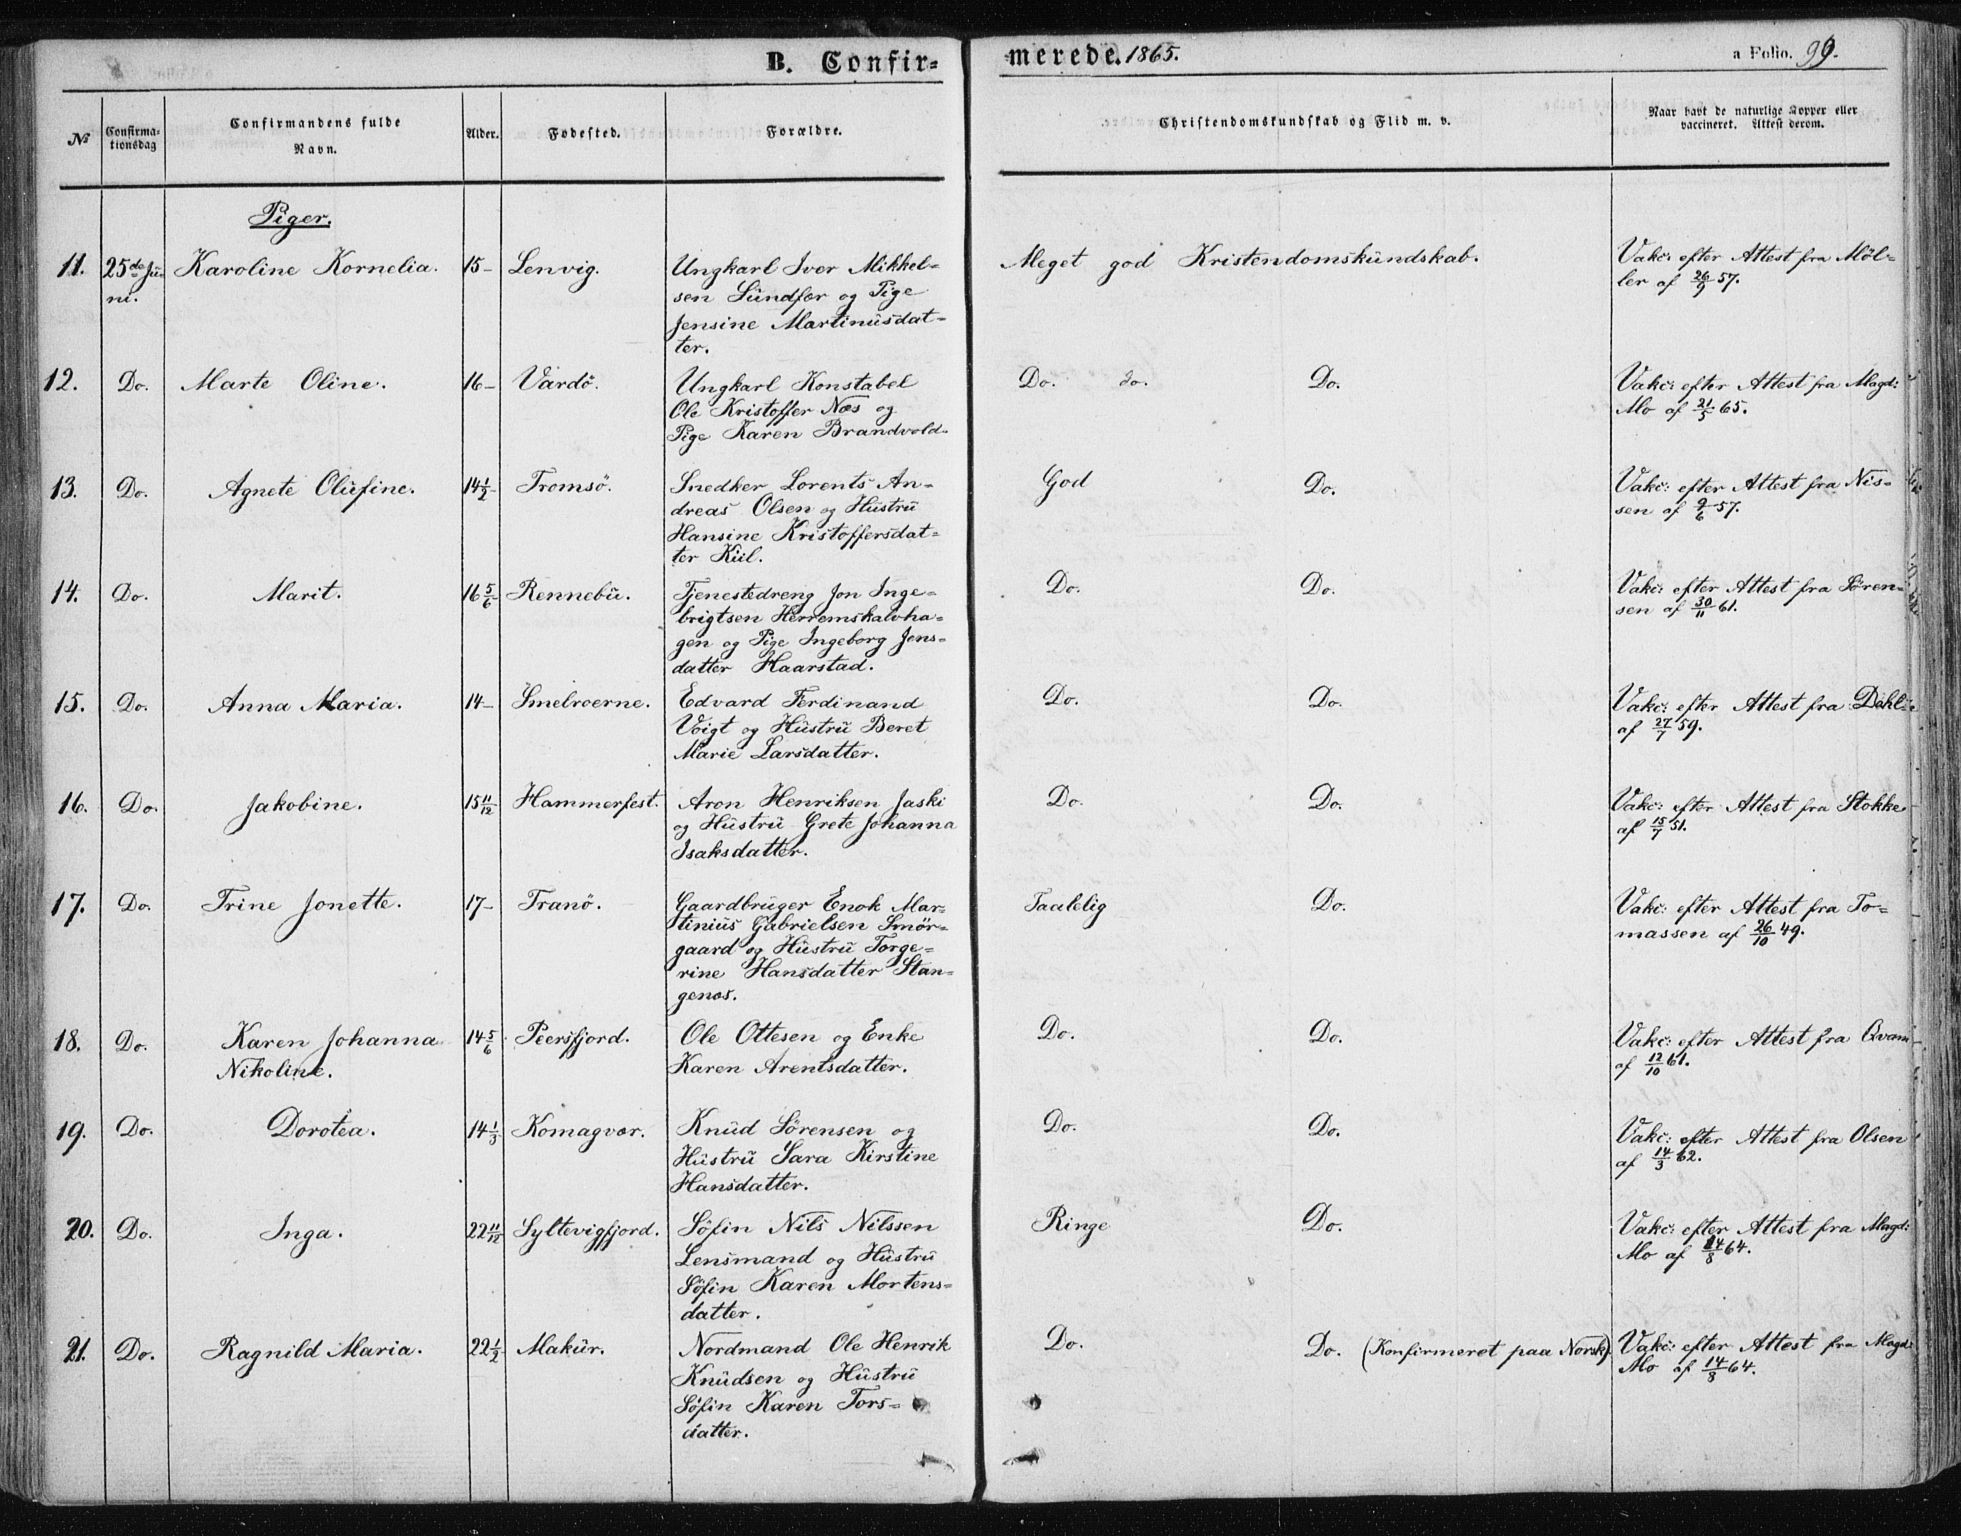 B. Confir-merede. 1865. a Folio. 99.
№ Confirma-tionsdag Confirmandens fulde Navn. Alder. Fødested. Forældre. Christendomskundskab og Flid m. v. Naar havt de naturlige Kopper eller vaccineret. Attest derom.
Piger.
11. 25de Ju- Karoline Kornelia. 15- Lenvig. Ungkarl Iver Mikkel- Meget god Kristendomskundskab. Vakc: efter Attest fra Möl-
ni. sen Sundfor og Pige ler af 26/9 57.
Jensine Martinusdat-
ter.
12. Do. Marte Oline. 16- Vardö. Ungkarl Konstabel Do. do. Do. Vakc: efter Attest fra Magd:
Ole Kristoffer Næs og Mo af 21/5 65.
Pige Karen Brandvold.
13. Do. Agnete Olufine. 14 1/2- Tromsö. Snedker Lorents An- God Do. Vakc: efter Attest fra Nis-
dreas Olsen og Hustru sen af 9/6 57.
Hansine Kristoffersdat-
ter Kiil.
14. Do. Marit. 16 5/6- Rennebu. Tjenestedreng Jon Inge- Do. Do. Vakc: efter Attest fra Sören-
brigtsen Herremskalvha- sen af 30/11 61.
gen og Pige Ingeborg Jens-
datter Haarstad.
15. Do. Anna Maria. 14- Smelroerne. Edvard Ferdinand Do. Do. Vakc: efter Attest fra Dahl
Voigt og Hustru Beret af 27/7 59.
Marie Larsdatter.
16. Do. Jakobine. 15 11/12 Hammerfest. Aron Henriksen Jaski Do. Do. Vakc: efter Attest fra Stokke
og Hustru Grete Johanna af 15/7 51.
Isaksdatter.
17. Do. Trine Jonette. 17- Tranö. Gaardbruger Enok Mar- Taalelig Do. Vakc: efter Attest fra To-
tinius Gabrielsen Smör- massen af 26/10 49.
gaard og Hustru Torge-
rine Hansdatter Stan-
genæs.
18. Do. Karen Johanna 14 5/6 Peersfjord. Ole Ottesen og Enke Do. Do. Vakc: efter Attest fra Qvam
Nikoline. Karen Arentsdatter. af 12/10 61.
19. Do. Dorotea. 14 1/3 Komagvær. Knud Sörensen og Do. Do. Vakc: efter Attest fra Olsen
Hustru Sara Kirstine af 14/3 62.
Hansdatter.
20. Do. Inga. 22 11/12 Syltevigfjord. Söfin Nils Nilssen Ringe Do. Vakc: efter Attest fra Magd:
Lensmand og Hustru Mo af 14/8 64.
Söfin Karen Mortens-
datter.
21. Do. Ragnild Maria. 22 1/2 Makur. Nordmand Ole Henrik Do. Do. (Konfirmeret paa Norsk). Vakc: efter Attest fra Magd:
Knudsen og Hustru Mo af 14/8 64.
Söfin Karen Tors-
datter.